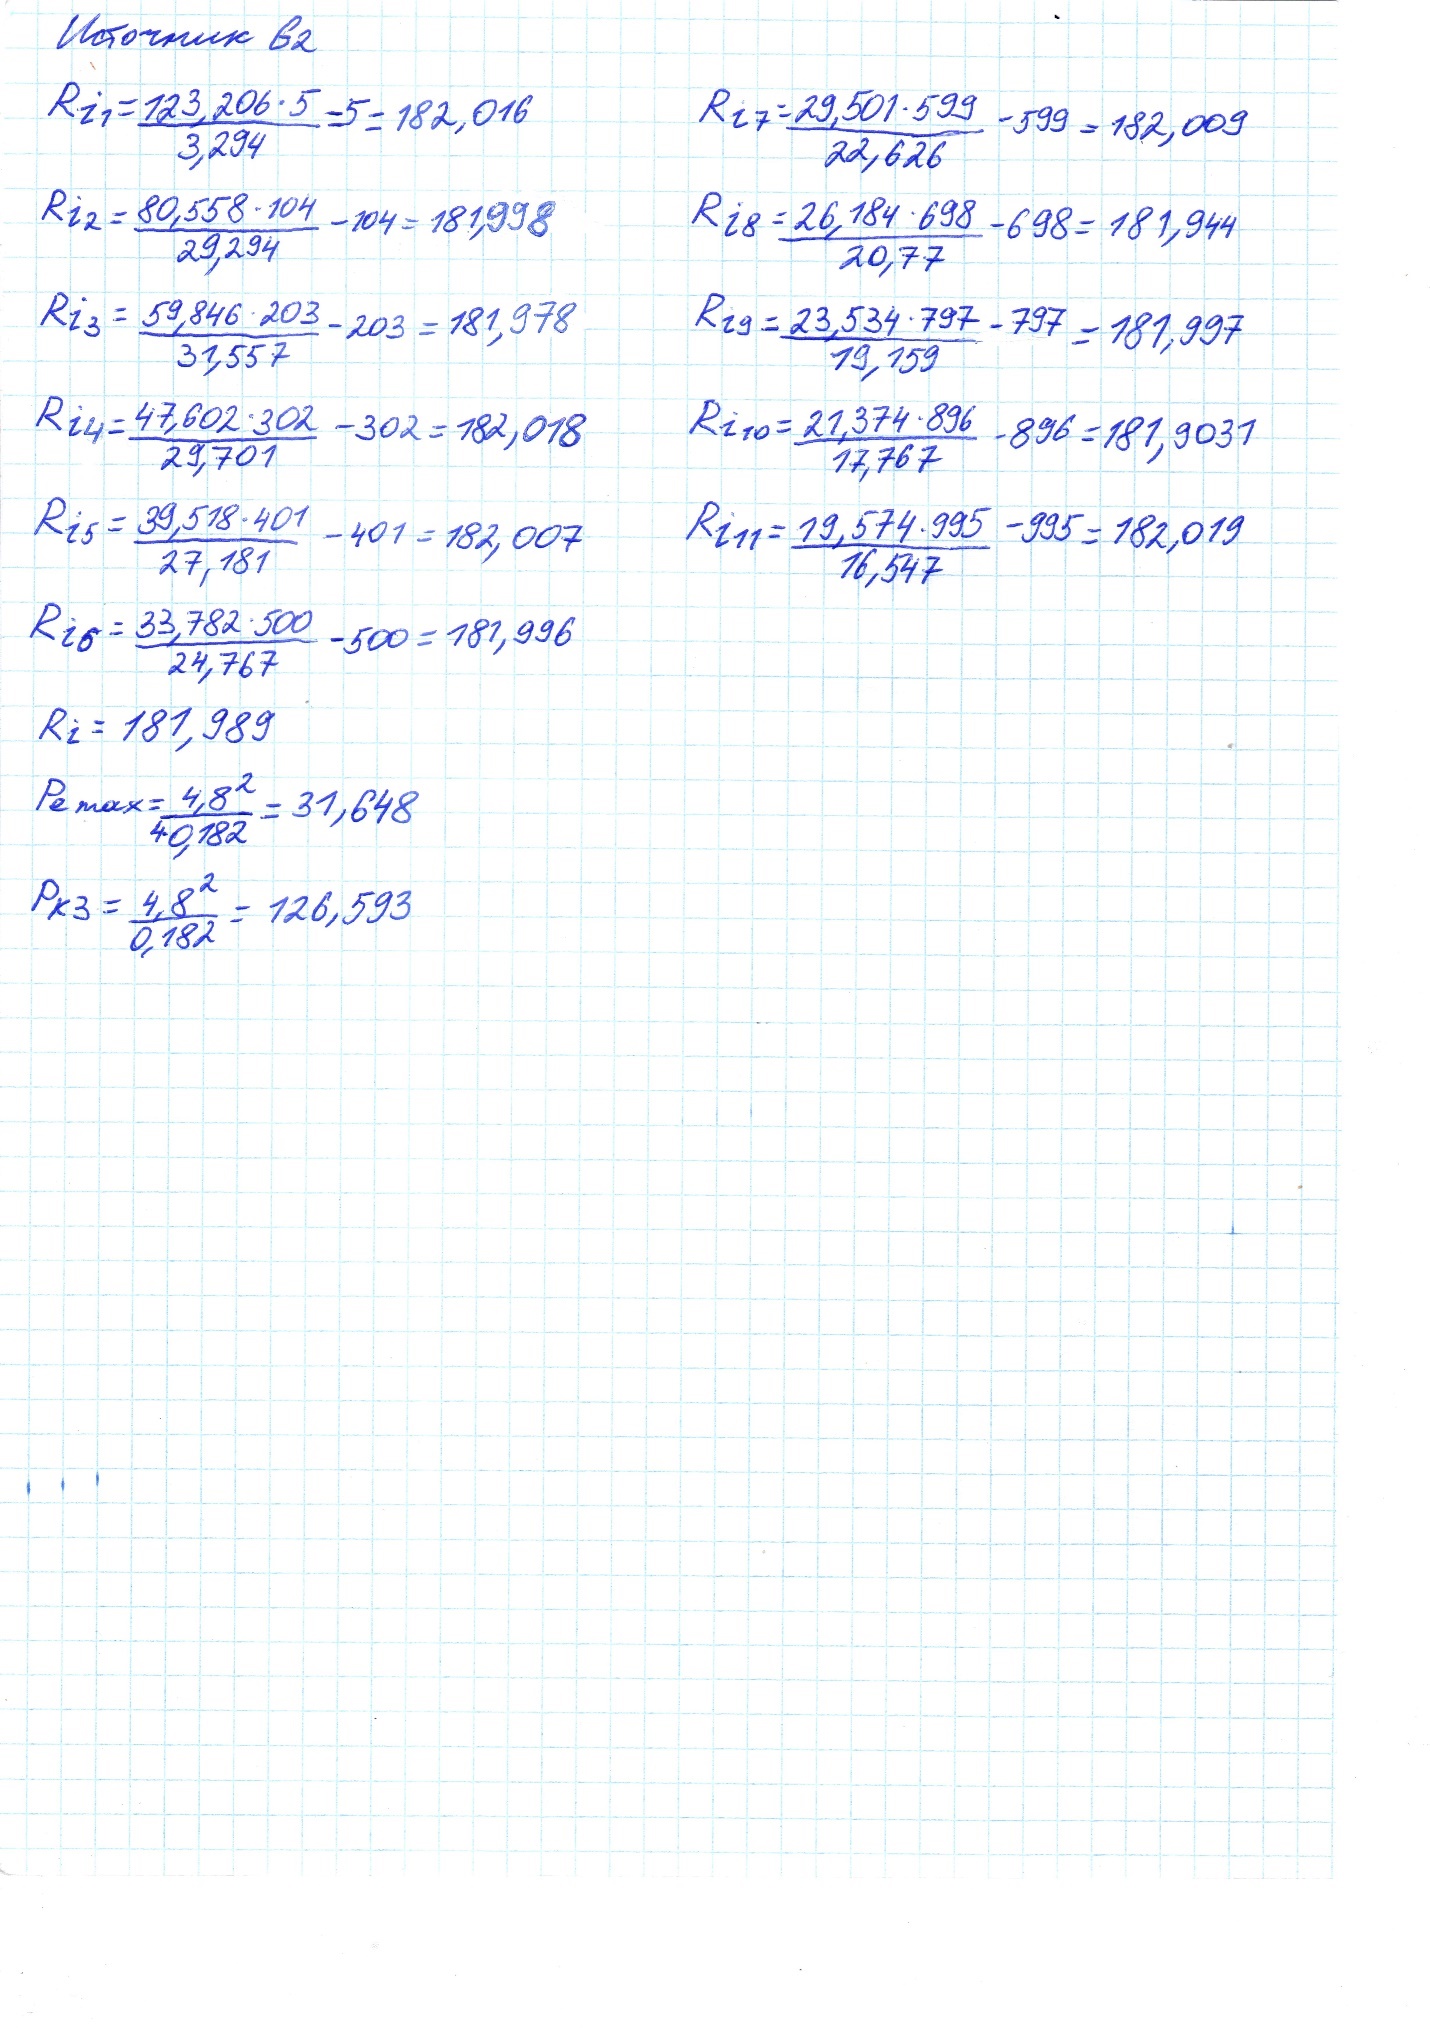 Источник В2
Ri1 = 123,206·5 / 3,294 = 5 = 182,016
Ri2 = 80,558·104 / 29,294 - 104 = 181,998
Ri3 = 59,846·203 / 31,557 - 203 = 181,978
Ri4 = 47,602·302 / 29,701 - 302 = 182,018
Ri5 = 39,518·401 / 27,181 - 401 = 182,007
Ri6 = 33,782·500 / 24,767 - 500 = 181,996
Ri = 181,989
Pe max = 4,8² / 4·0,182 = 31,648
Pкз = 4,8² / 0,182 = 126,593
Ri7 = 29,501·599 / 22,626 - 599 = 182,009
Ri8 = 26,184·698 / 20,77 - 698 = 181,944
Ri9 = 23,534·797 / 19,159 - 797 = 181,997
Ri10 = 21,374·896 / 17,767 - 896 = 181,9031
Ri11 = 19,574·995 / 16,547 - 995 = 182,019